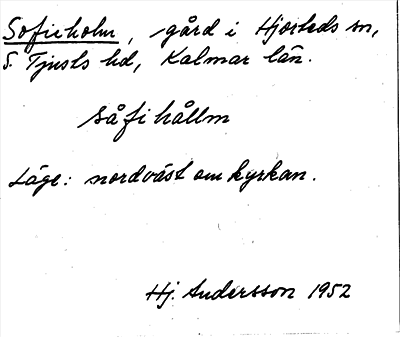 Sofieholm, gård i Hjorteds sn,
S. Tjusts hd, Kalmar län.
såfihållm
Läge: nordväst om kyrkan.
Hj. Andersson 1952